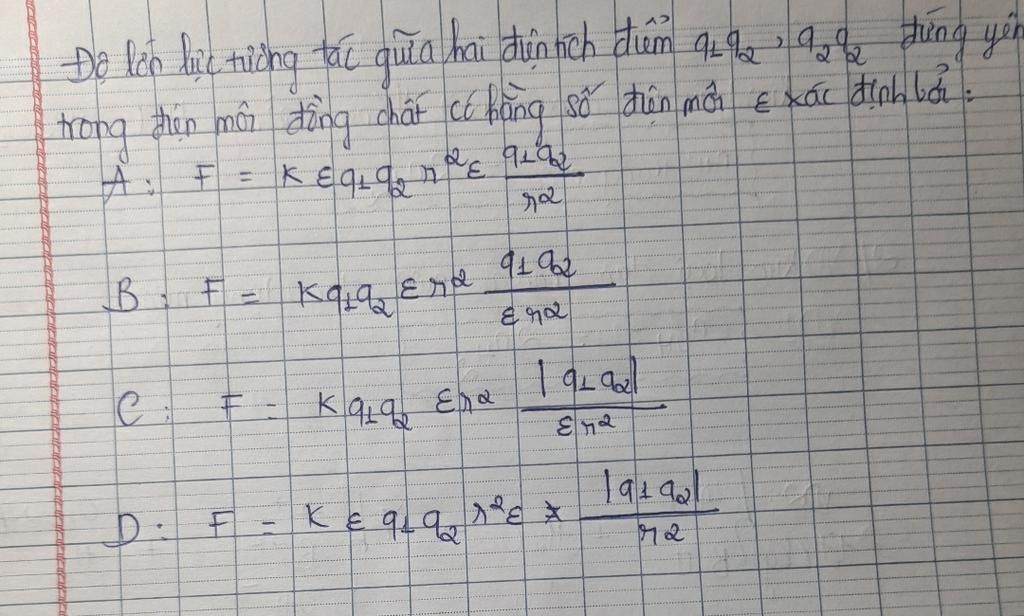 Độ lớn lực tương tác giữa hai điện tích điểm q₁q₂, q₂q₂ đứng yên
trong điện môi đồng chất có hằng số điện môi ε xác định bởi:
A: F = K ε q₁ q₂ r² ε \frac{q₁q₂}{r²}
B: F = K q₁q₂ ε r² \frac{q₁ q₂}{ε r²}
C: F = K q₁q₂ ε r² \frac{|q₁ q₂|}{ε r²}
D: F = K ε q₁ q₂ r² ε * \frac{|q₁ q₂|}{r²}